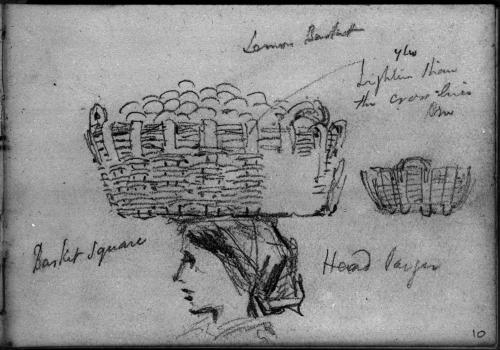 Lemon Basket
Lighter than
the cross lines
Basket Square
Head larger
10